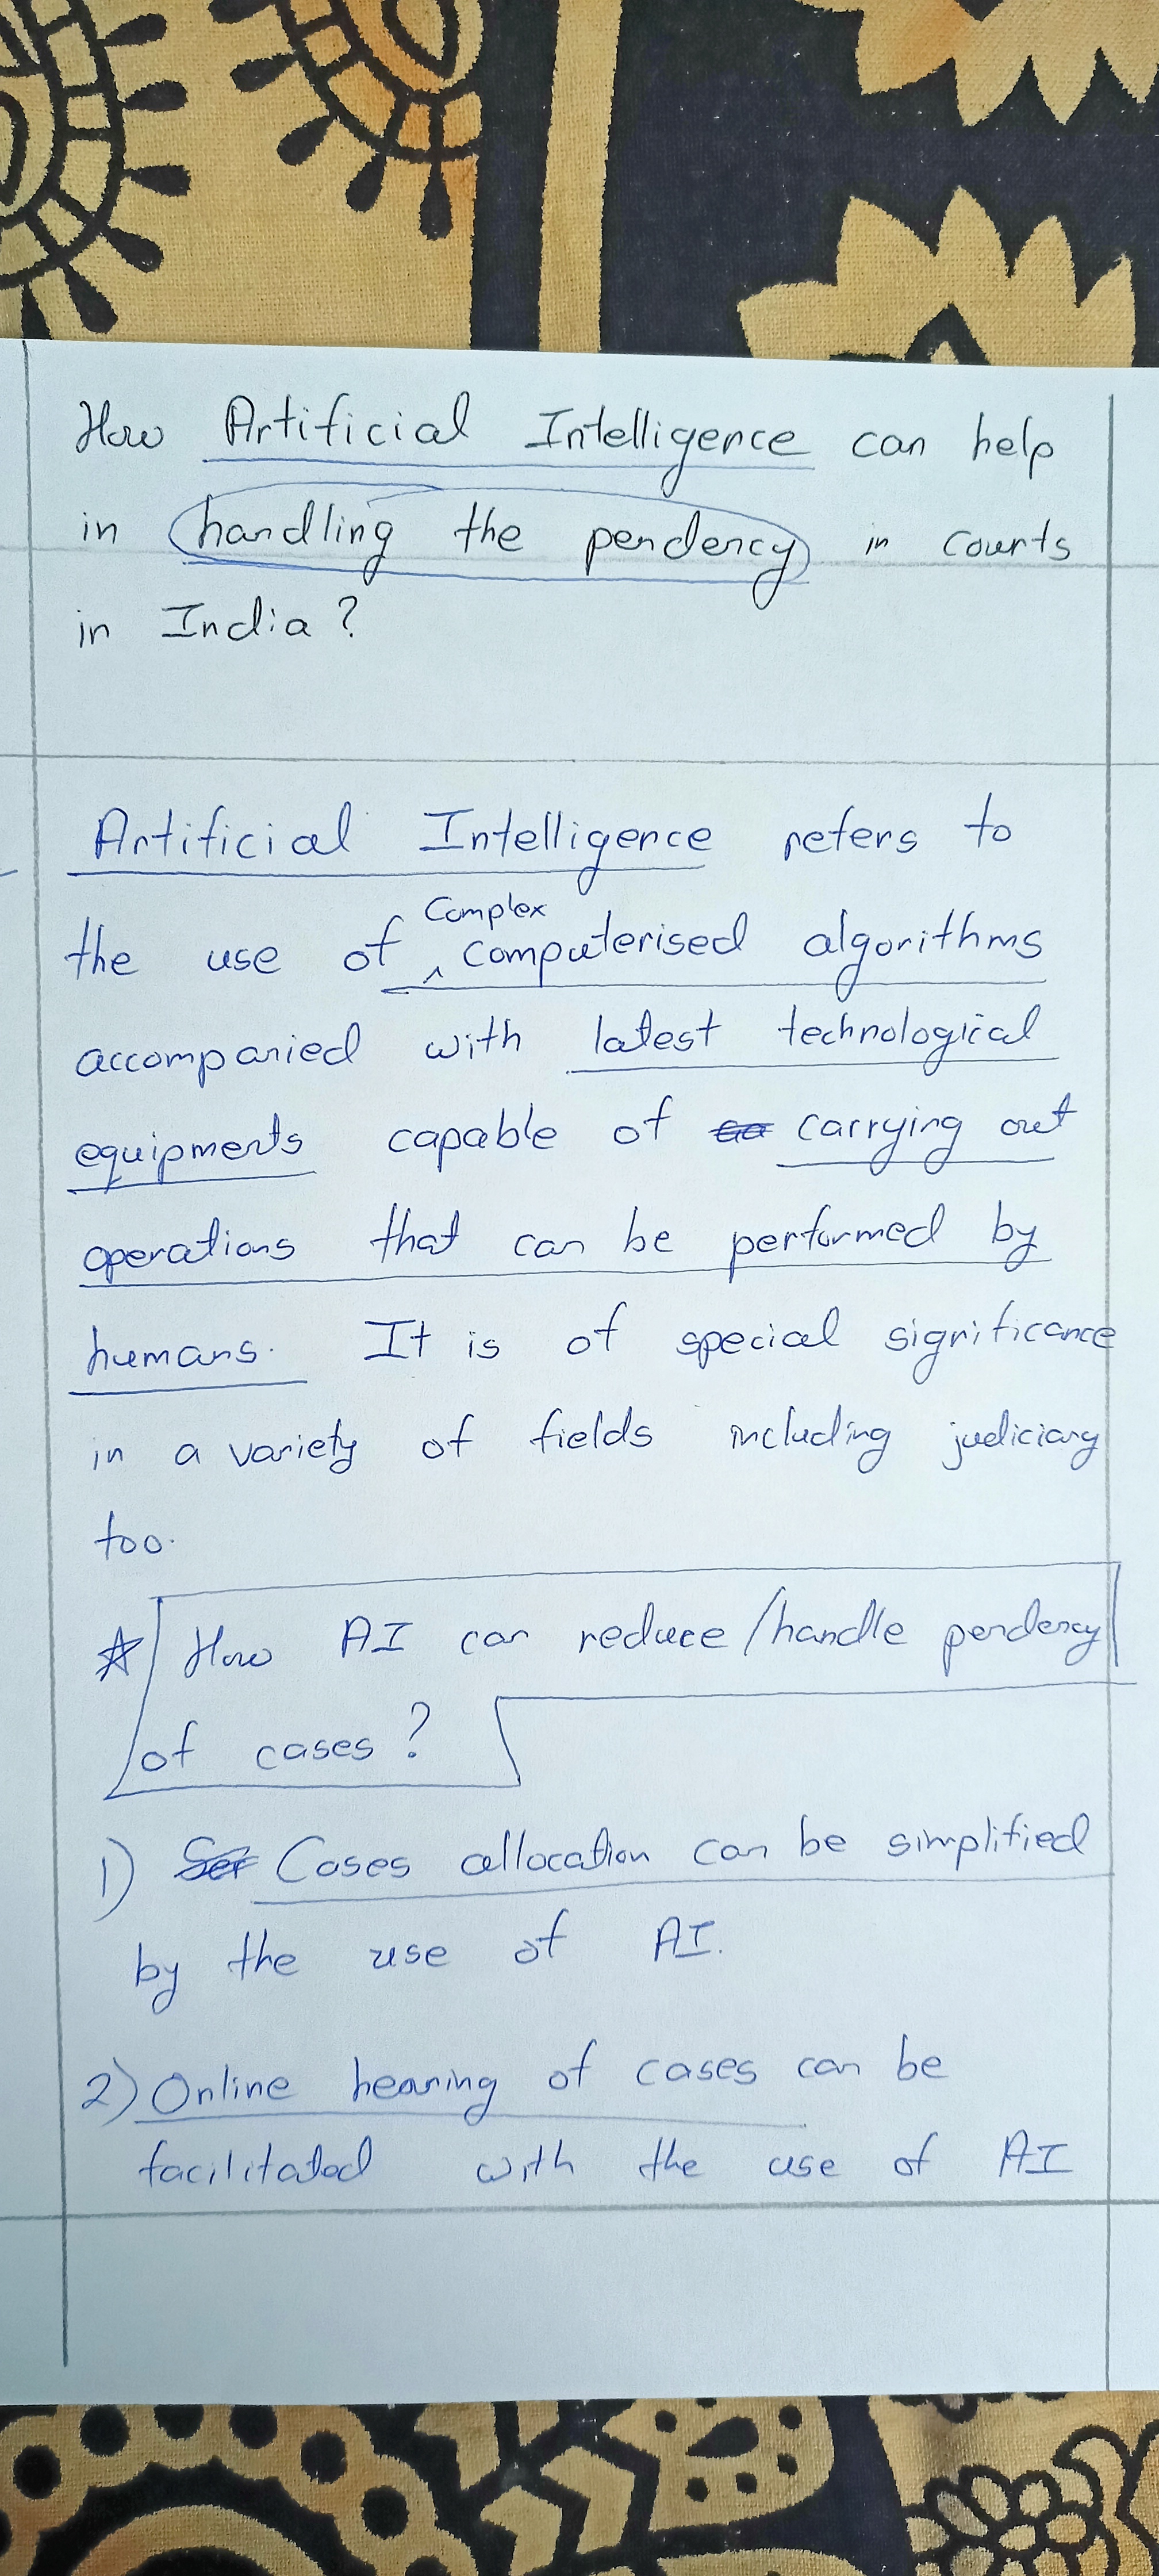 How Artificial Intelligence can help
in handling the pendency in courts
in India?
Artificial Intelligence refers to
the use of complex computerised algorithms
accompanied with latest technological
equipments capable of carrying out
operations that can be performed by
humans. It is of special significance
in a variety of fields including judiciary
too.
How AI can reduce/handle pendency
of cases?
1) Cases allocation can be simplified
by the use of AI.
2) Online hearing of cases can be
facilitated with the use of AI